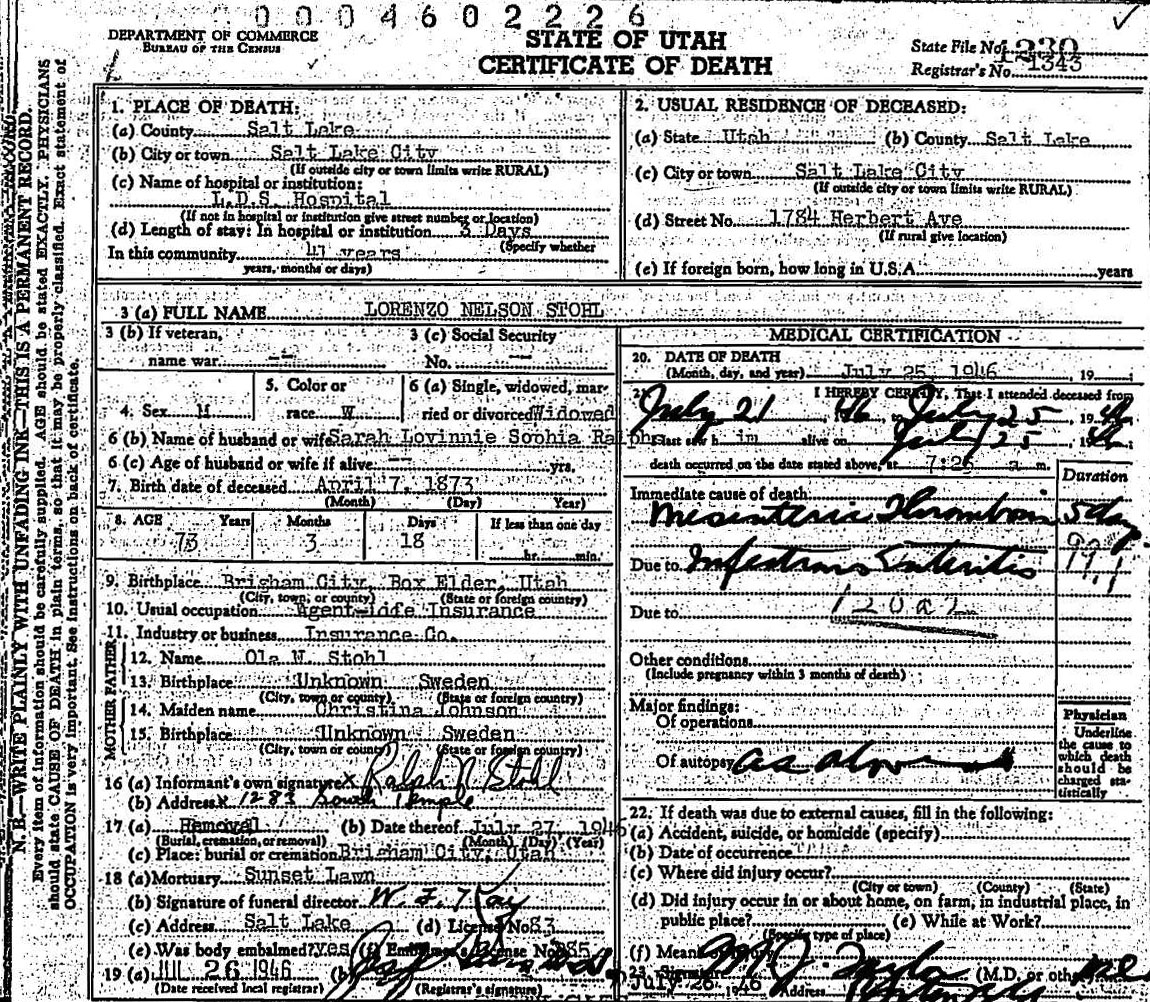 0004602226
DEPARTMENT OF COMMERCE
BUREAU OF THE CENSUS
STATE OF UTAH
CERTIFICATE OF DEATH
State File No.
Registrar's No. 1343
N. B.—WRITE PLAINLY WITH UNFADING INK—THIS IS A PERMANENT RECORD.
Every item of information should be carefully supplied. AGE should be stated EXACTLY. PHYSICIANS
should state CAUSE OF DEATH in plain terms, so that it may be properly classified. Exact statement of
OCCUPATION is very important. See instructions on back of certificate.
1. PLACE OF DEATH:
(a) County Salt Lake
(b) City or town Salt Lake City
(If outside city or town limits write RURAL)
(c) Name of hospital or institution:
L.D.S. Hospital
(If not in hospital or institution give street number or location)
(d) Length of stay: In hospital or institution 3 Days
(Specify whether
In this community years
years, months or days)
2. USUAL RESIDENCE OF DECEASED:
(a) State Utah (b) County Salt Lake
(c) City or town Salt Lake City
(If outside city or town limits write RURAL)
(d) Street No. 1784 Herbert Ave
(If rural give location)
(e) If foreign born, how long in U.S.A. years
3 (a) FULL NAME LORENZO NELSON STOHL
3 (b) If veteran,
name war --
3 (c) Social Security
No. --
4. Sex M
5. Color or
race W
6 (a) Single, widowed, mar-
ried or divorced Widowed
6 (b) Name of husband or wife Sarah Lovinnie Sophia Ralphs
6 (c) Age of husband or wife if alive -- yrs.
7. Birth date of deceased April 7, 1873
(Month) (Day) Year)
8. AGE Years Months Days If less than one day
73 3 18 hr. min.
9. Birthplace Brigham City, Box Elder, Utah
(City, town, or county) (State or foreign country)
10. Usual occupation Agent-Life Insurance
11. Industry or business Insurance Co.
FATHER
12. Name Ole N. Stohl
13. Birthplace Unknown Sweden
(City, town or county) (State or foreign country)
MOTHER
14. Maiden name Christina Johnson
15. Birthplace Unknown Sweden
(City, town or county) (State or foreign country)
16 (a) Informant's own signature x Ralph N Stohl
(b) Address x 1283 South Temple
17 (a) Removal (b) Date thereof July 27, 1946
(Burial, cremation, or removal) (Month) (Day) (Year)
(c) Place: burial or cremation Brigham City, Utah
18 (a) Mortuary Sunset Lawn
(b) Signature of funeral director
(c) Address Salt Lake (d) License No. 83
(e) Was body embalmed? yes (f) Embalmer's License No. 285
19 (a) JUL 26 1946 (b)
(Date received local registrar) (Registrar's signature)
MEDICAL CERTIFICATION
20. DATE OF DEATH
(Month, day, and year) July 25, 1946, 19
21. I HEREBY CERTIFY, That I attended deceased from
July 21 46 to July 25, 1946
I last saw him alive on July 25 1946
death occurred on the date stated above, at 7:25 a m.
Duration
Immediate cause of death
Mesenteric Thrombosis 5 days
Due to Infectious Enteritis 99.1
Due to 120a2
Other conditions
(Include pregnancy within 3 months of death)
Major findings:
Of operations
Of autopsy as above
Physician
Underline
the cause to
which death
should be
charged sta-
tistically
22. If death was due to external causes, fill in the following:
(a) Accident, suicide, or homicide (specify)
(b) Date of occurrence
(c) Where did injury occur?
(City or town) (County) (State)
(d) Did injury occur in or about home, on farm, in industrial place, in
public place? (e) While at Work?
(Specify type of place)
(f) Means
23. Signature (M.D. or other
July 26 1946 Address